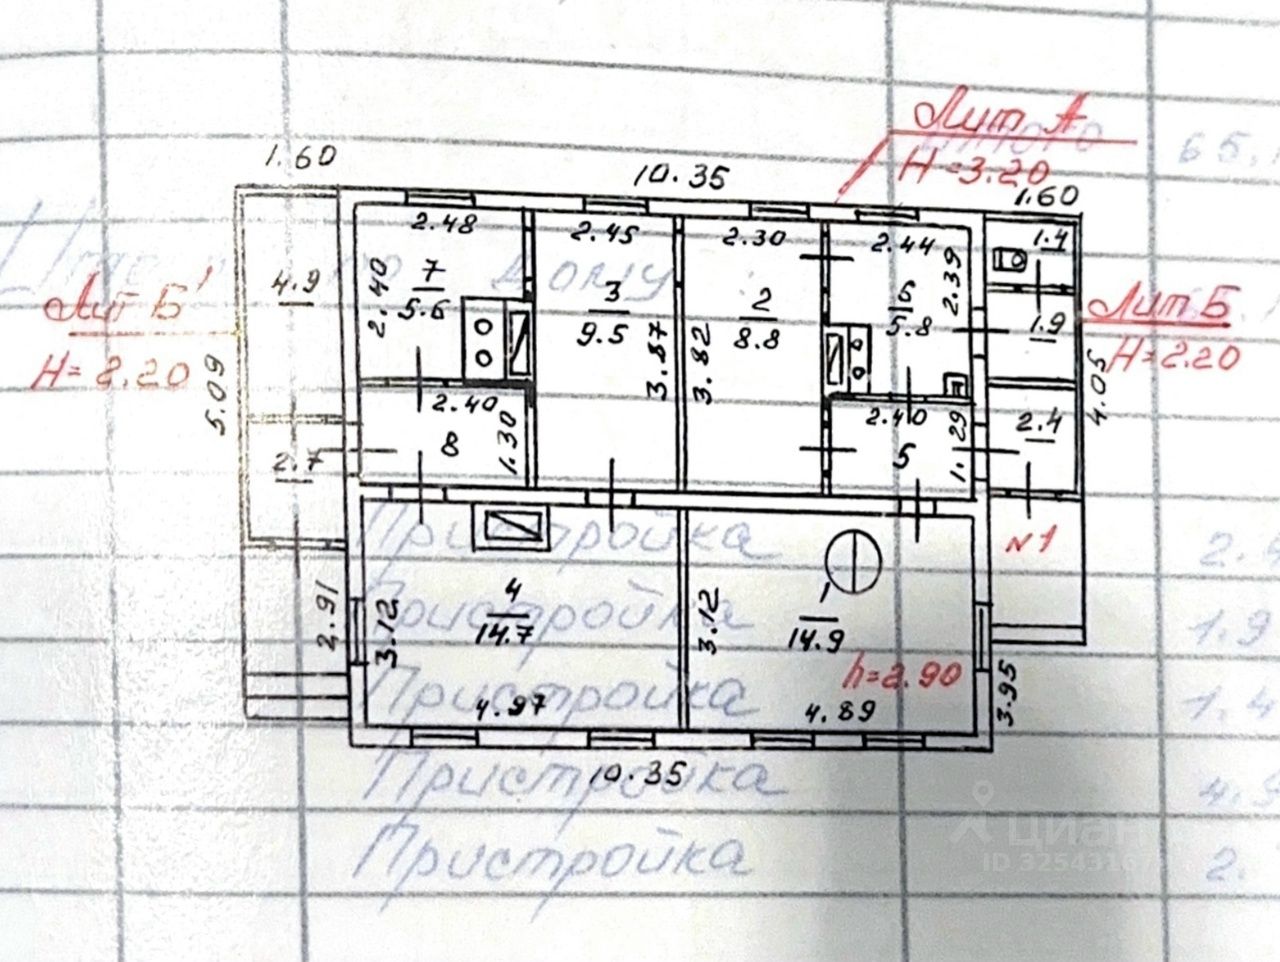 Лит А
Итого
65.
1.60
10.35
H=3.20
1.60
2.48
2.45
2.30
2.44
1.4
4.9
2.40
7
5.6
дому
3
9.5
2
8.8
6
5.8
2.39
1.9
Лит Б'
H=2.20
Лит Б
H=2.20
5.09
3.87
3.82
4.05
2.40
1.30
8
2.40
5
1.29
2.4
2.7
Пристройка
2.
N1
2.91
3.12
4
14.7
Пристройка
3.12
1
14.9
1.9
h=2.90
3.95
4.97
Пристройка
4.89
1.4
10.35
Пристройка
4.9
циан
ID 3254316
Пристройка
2.